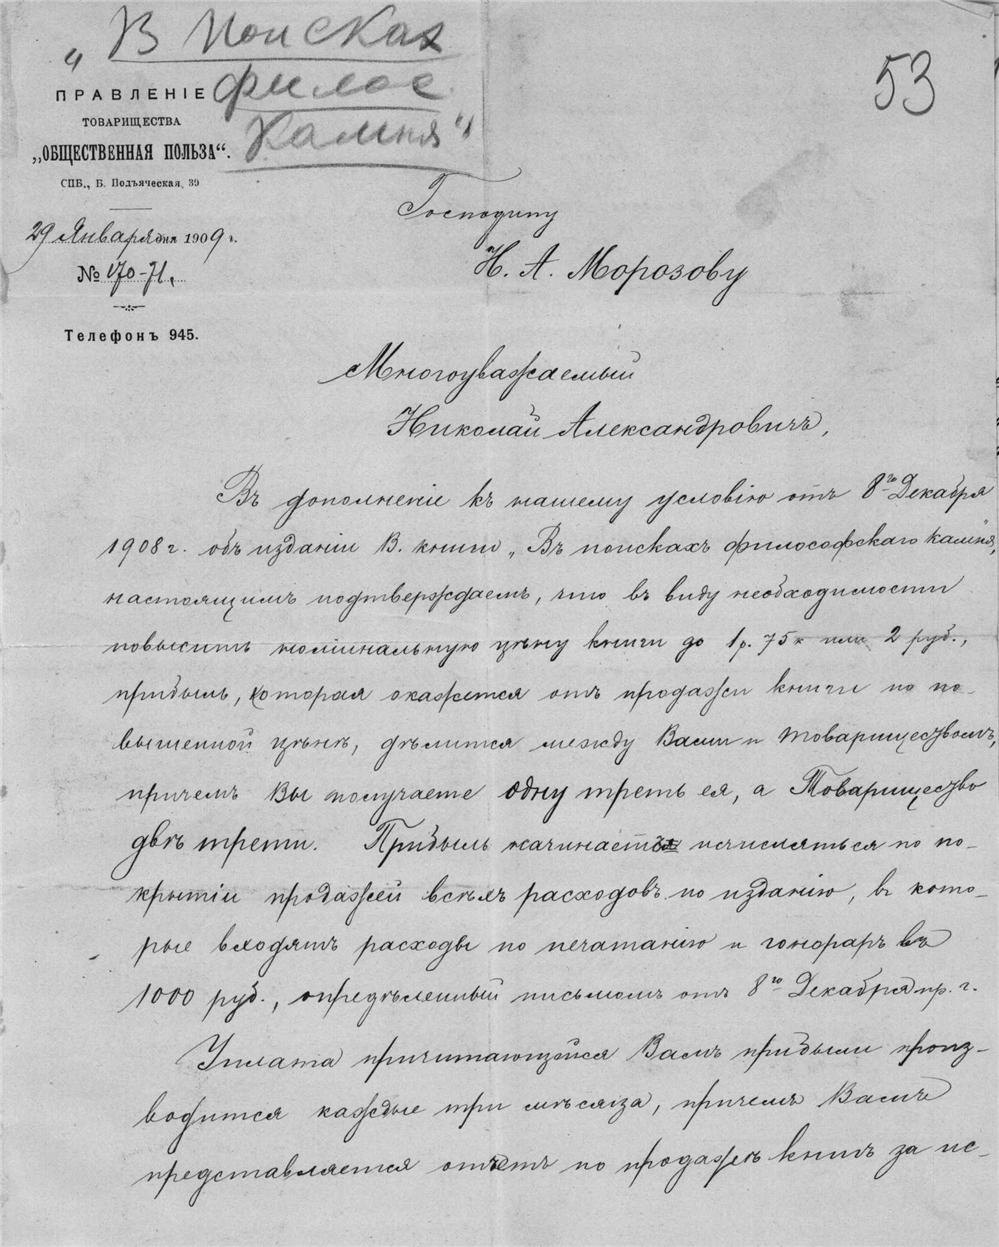 „В поисках
филос.
камня"
53
ПРАВЛЕНІЕ
ТОВАРИЩЕСТВА
„ОБЩЕСТВЕННАЯ ПОЛЬЗА“.
СПБ., Б. Подъяческая, 39
29 Января дня 1909 г.
№ 170-71.
Телефонъ 945.
Господину
Н. А. Морозову
Многоуважаемый
Николай Александровичъ,
Въ дополненіе къ нашему условію отъ 8го Декабря
1908 г. объ изданіи В. книги „Въ поискахъ философскаго камня",
настоящимъ подтверждаемъ, что въ виду необходимости
повысить номинальную цѣну книги до 1р. 75к или 2 руб.,
прибыль, которая окажется отъ продажи книги по по-
вышенной цѣнѣ, дѣлится между Вами и Товариществомъ,
причемъ Вы получаете одну треть ея, а Товарищество
двѣ трети. Прибыль начинаетъ исчисляться по по-
крытіи продажей всѣхъ расходовъ по изданію, въ кото-
рые входятъ расходы по печатанію и гонораръ въ
1000 руб., опредѣленный письмомъ отъ 8го Декабря пр. г.
Уплата причитающейся Вамъ прибыли произ-
водится каждые три мѣсяца, причемъ Вамъ
представляется отчетъ по продажѣ книгъ за ис-